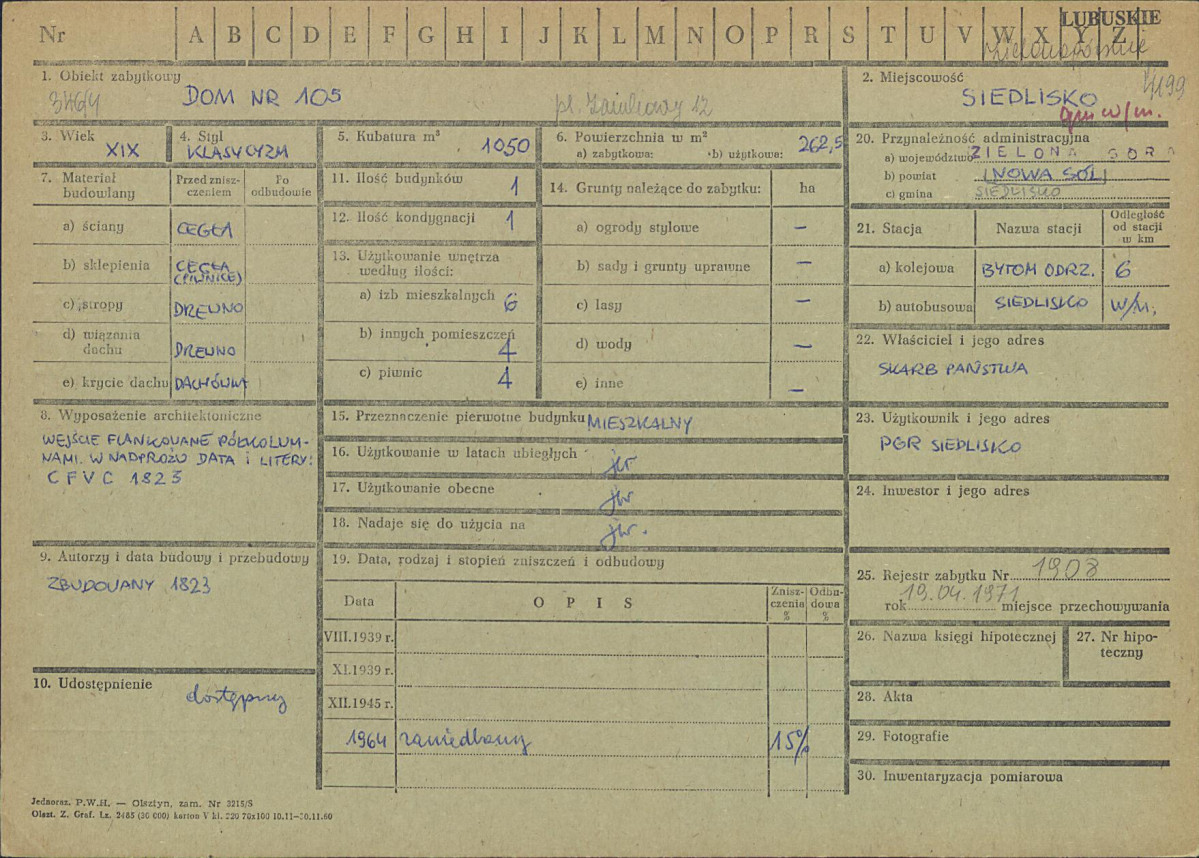 Nr A B C D E F G H I J K L M N O P R S T U V W X Y Z
LUBUSKIE
zielonogórskie
1. Obiekt zabytkowy
346/4
DOM NR 105
pl. Zamkowy 12
2. Miejscowość
4199
SIEDLISKO
gm w/m.
3. Wiek
XIX
4. Styl
KLASYCYZM
5. Kubatura m³
1050
6. Powierzchnia w m²
a) zabytkowa: b) użytkowa: 262,5
7. Materiał budowlany
Przed zniszczeniem
Po odbudowie
a) ściany CEGŁA
b) sklepienia CEGŁA (PIWNICE)
c) stropy DREWNO
d) wiązania dachu DREWNO
e) krycie dachu DACHÓWKA
8. Wyposażenie architektoniczne
WEJŚCIE FLANKOWANE PÓŁKOLUM-
NAMI. W NADPROŻU DATA i LITERY:
C F V C 1823
9. Autorzy i data budowy i przebudowy
ZBUDOWANY 1823
10. Udostępnienie
dostępny
11. Ilość budynków 1
12. Ilość kondygnacji 1
13. Użytkowanie wnętrza
według ilości:
a) izb mieszkalnych 6
b) innych pomieszczeń 4
c) piwnic 4
14. Grunty należące do zabytku: ha
a) ogrody stylowe —
b) sady i grunty uprawne —
c) lasy —
d) wody —
e) inne —
15. Przeznaczenie pierwotne budynku MIESZKALNY
16. Użytkowanie w latach ubiegłych jw
17. Użytkowanie obecne jw
18. Nadaje się do użycia na jw.
19. Data, rodzaj i stopień zniszczeń i odbudowy
Data OPIS Zniszczenia % Odbudowa %
VIII.1939 r.
XI.1939 r.
XII.1945 r.
1964 zaniedbany 15%
20. Przynależność administracyjna
a) województwo ZIELONA GÓRA
b) powiat NOWA SÓL
c) gmina SIEDLISKO
21. Stacja Nazwa stacji Odległość od stacji w km
a) kolejowa BYTOM ODRZ. 6
b) autobusowa SIEDLISKO w/m.
22. Właściciel i jego adres
SKARB PAŃSTWA
23. Użytkownik i jego adres
PGR SIEDLISKO
24. Inwestor i jego adres
25. Rejestr zabytku Nr 1908
rok 19.04.1971 miejsce przechowywania
26. Nazwa księgi hipotecznej
27. Nr hipoteczny
28. Akta
29. Fotografie
30. Inwentaryzacja pomiarowa
Jednoraz. P.W.H. — Olsztyn, zam. Nr 3215/S
Olszt. Z. Graf. Lz. 2485 (30 000) karton V kl. 220 70x100 10.11—30.11.60